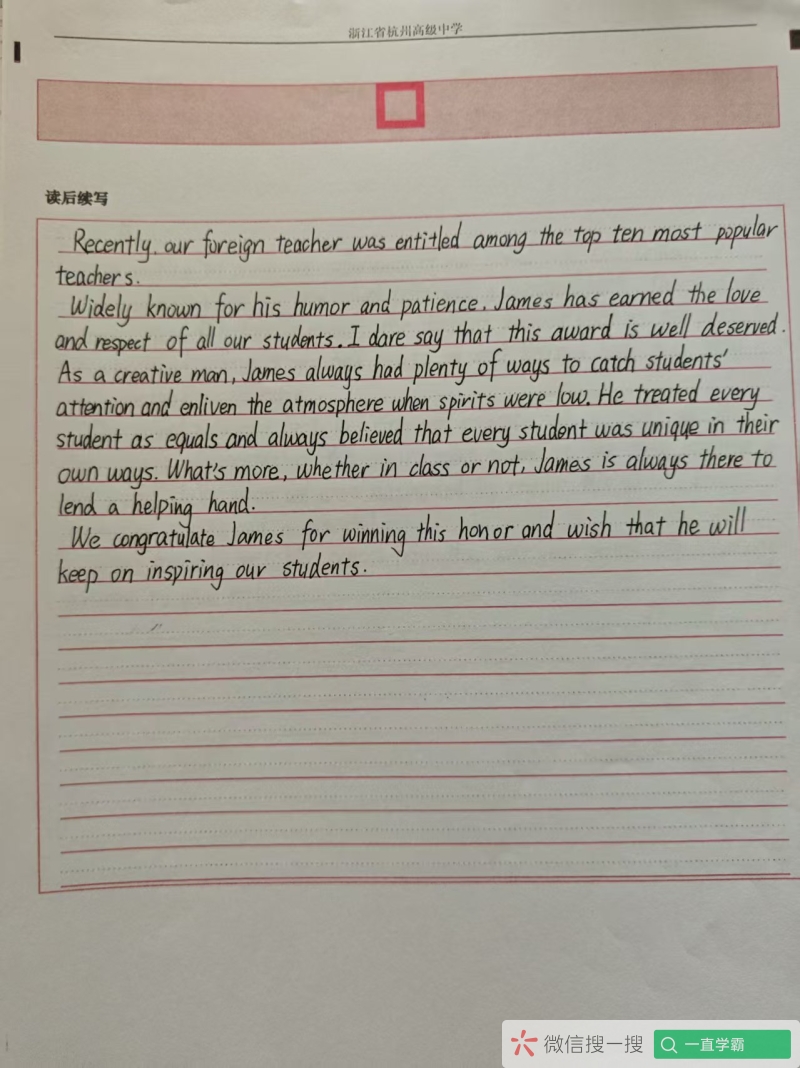 浙江省杭州高级中学
读后续写
Recently, our foreign teacher was entitled among the top ten most popular
teachers.
Widely known for his humor and patience, James has earned the love
and respect of all our students. I dare say that this award is well deserved.
As a creative man, James always had plenty of ways to catch students'
attention and enliven the atmosphere when spirits were low. He treated every
student as equals and always believed that every student was unique in their
own ways. What's more, whether in class or not, James is always there to
lend a helping hand.
We congratulate James for winning this honor and wish that he will
keep on inspiring our students.
微信搜一搜
一直学霸